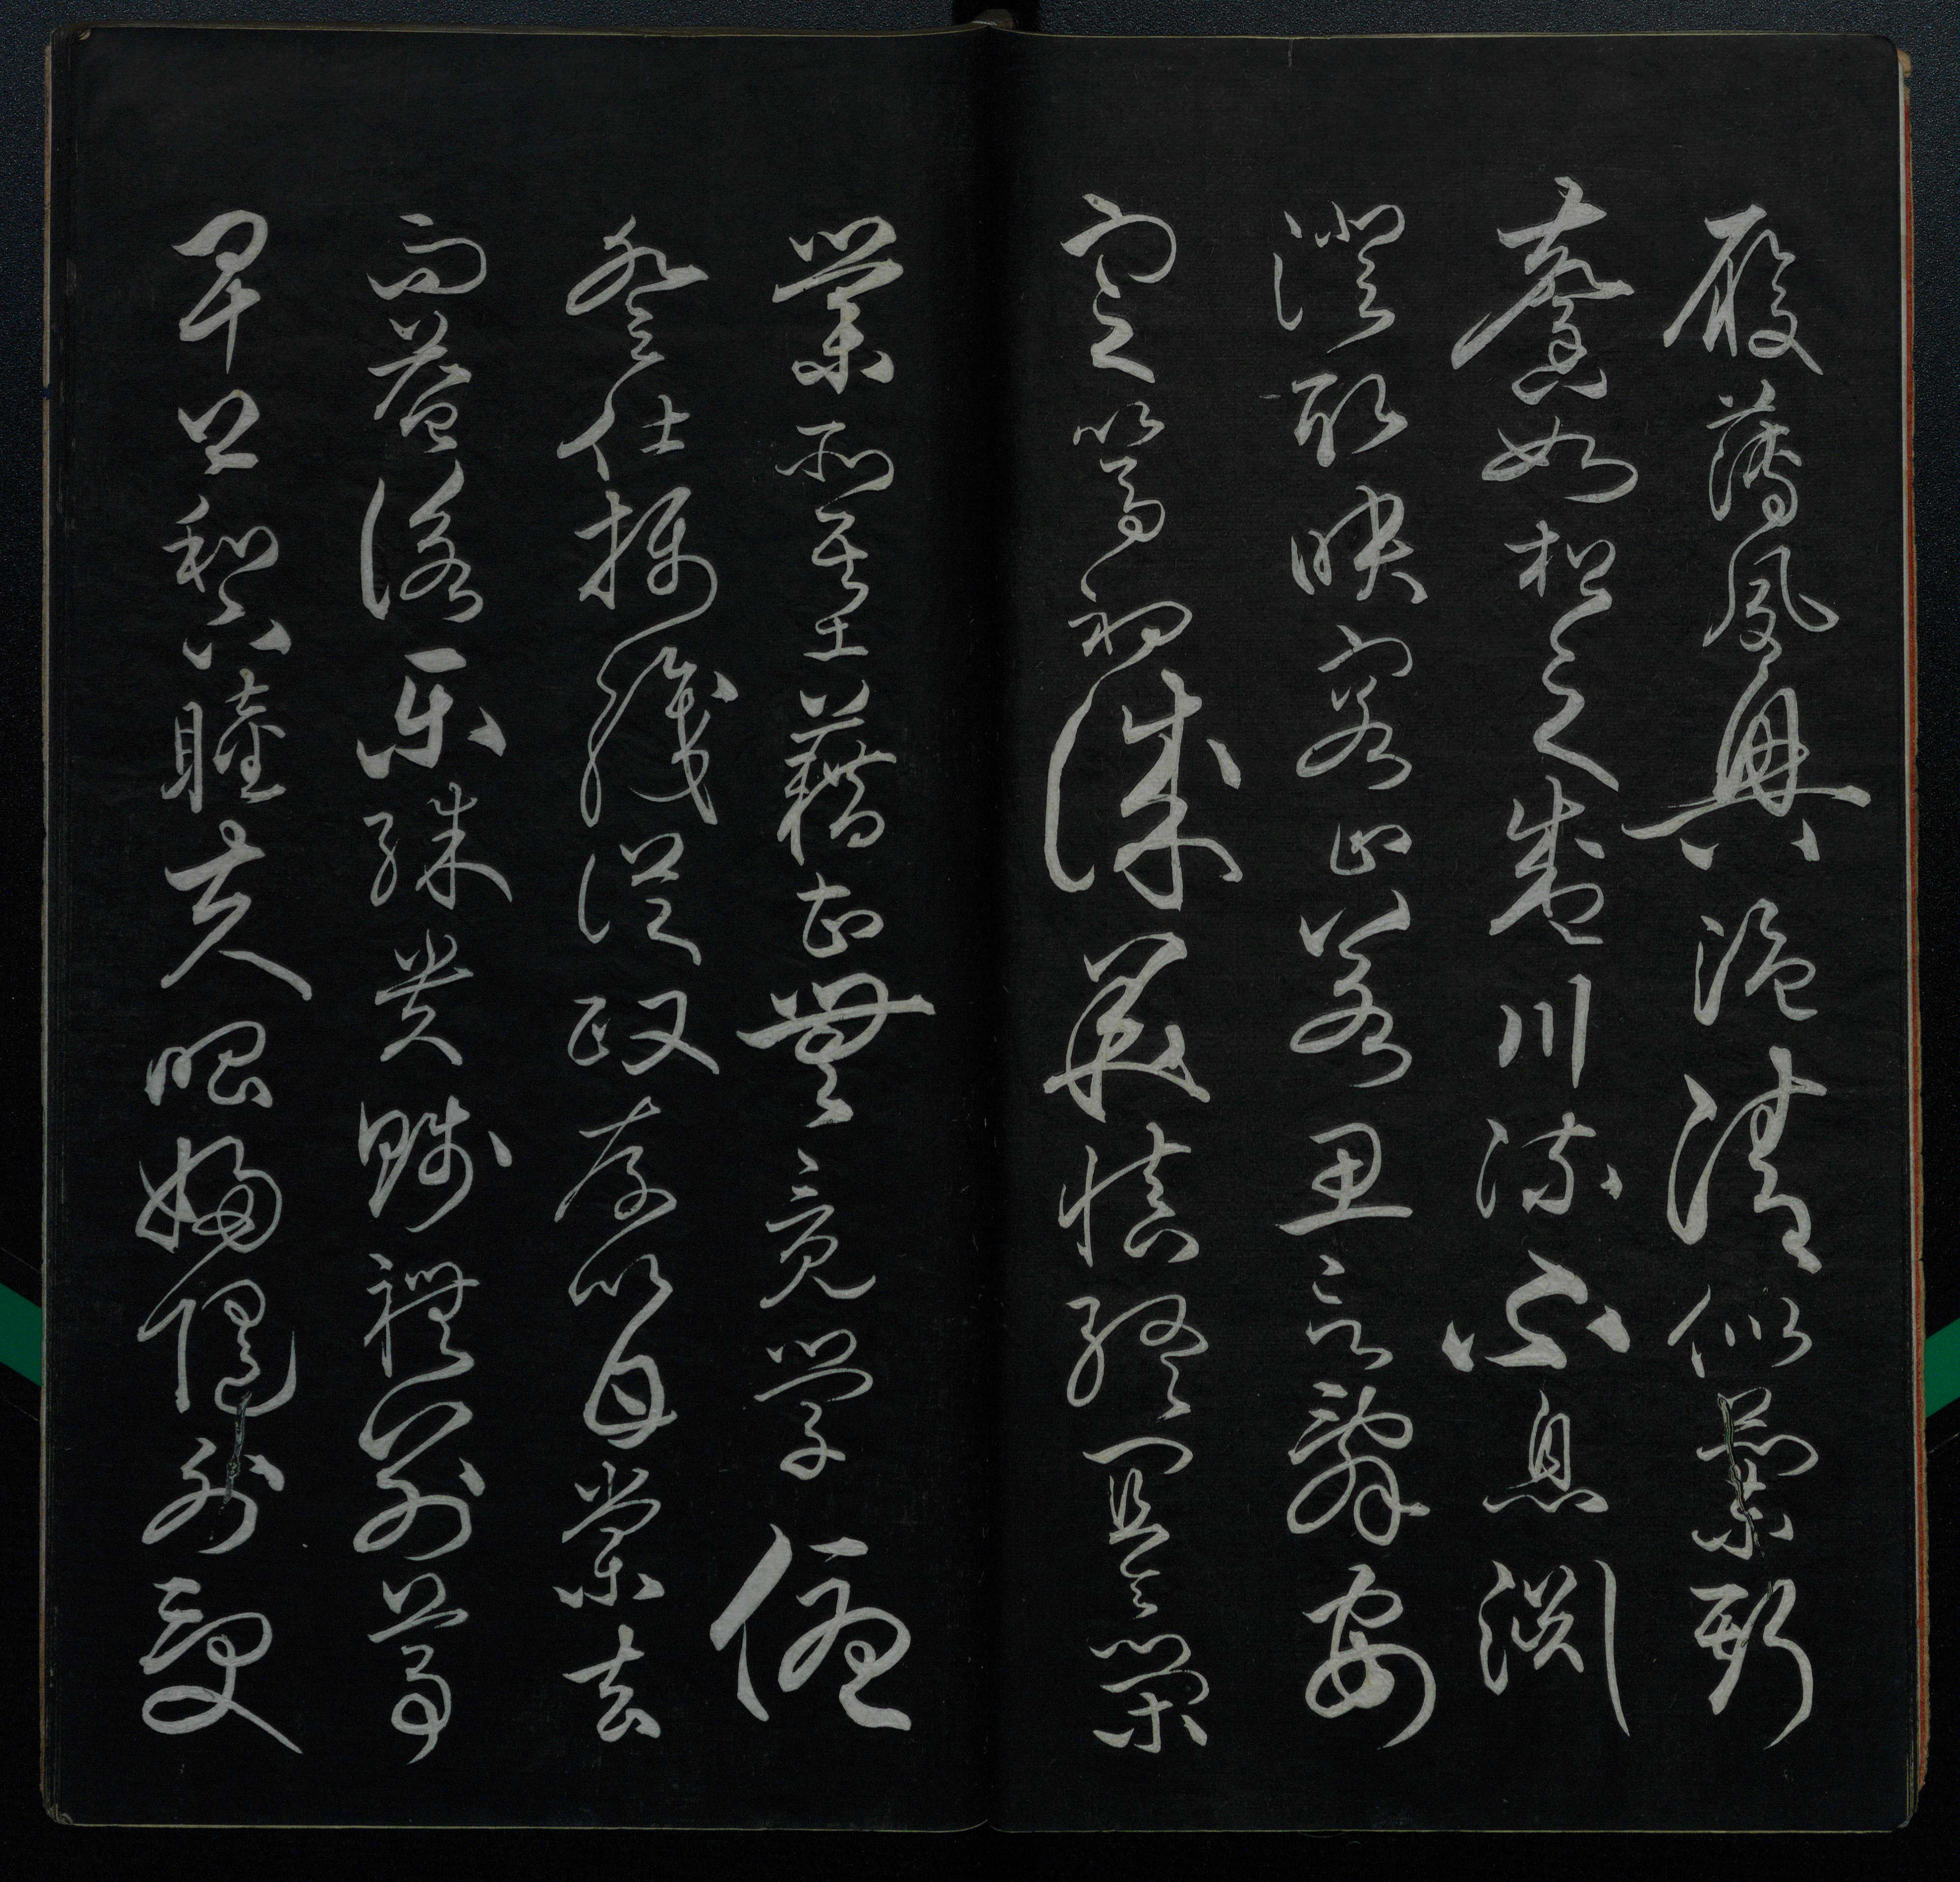 履薄夙興溫清似蘭斯
馨如松之盛川流不息淵
澄取映容止若思言辭安
定篤初誠美慎終宜令榮
業所基藉甚無竟學優
登仕攝職從政存以甘棠去
而益詠樂殊貴賤禮別尊
卑上和下睦夫唱婦隨外受